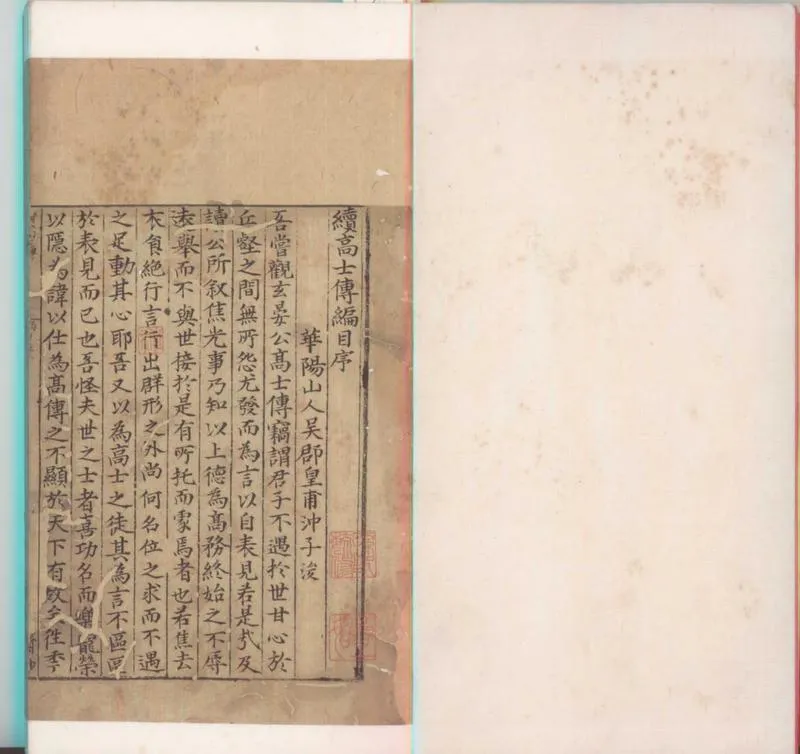 續高士傳編目序
華陽山人吴郡皇甫沖子浚
吾嘗觀玄晏公髙士傳竊謂君子不遇於世甘心於
丘壑之間無所怨尤發而為言以自表見若是哉及
讀公所叙焦光事乃知以上德為髙務終始之不辱
表舉而不與世接於是有所托而䝉焉者也若焦去
衣食絶行言行出群形之外尚何名位之求而不遇
之足動其心耶吾又以為高士之徒其為言不區區
於表見而已也吾怪夫世之士者喜功名而樂寵榮
以隱為諱以仕為髙傳之不顯於天下有